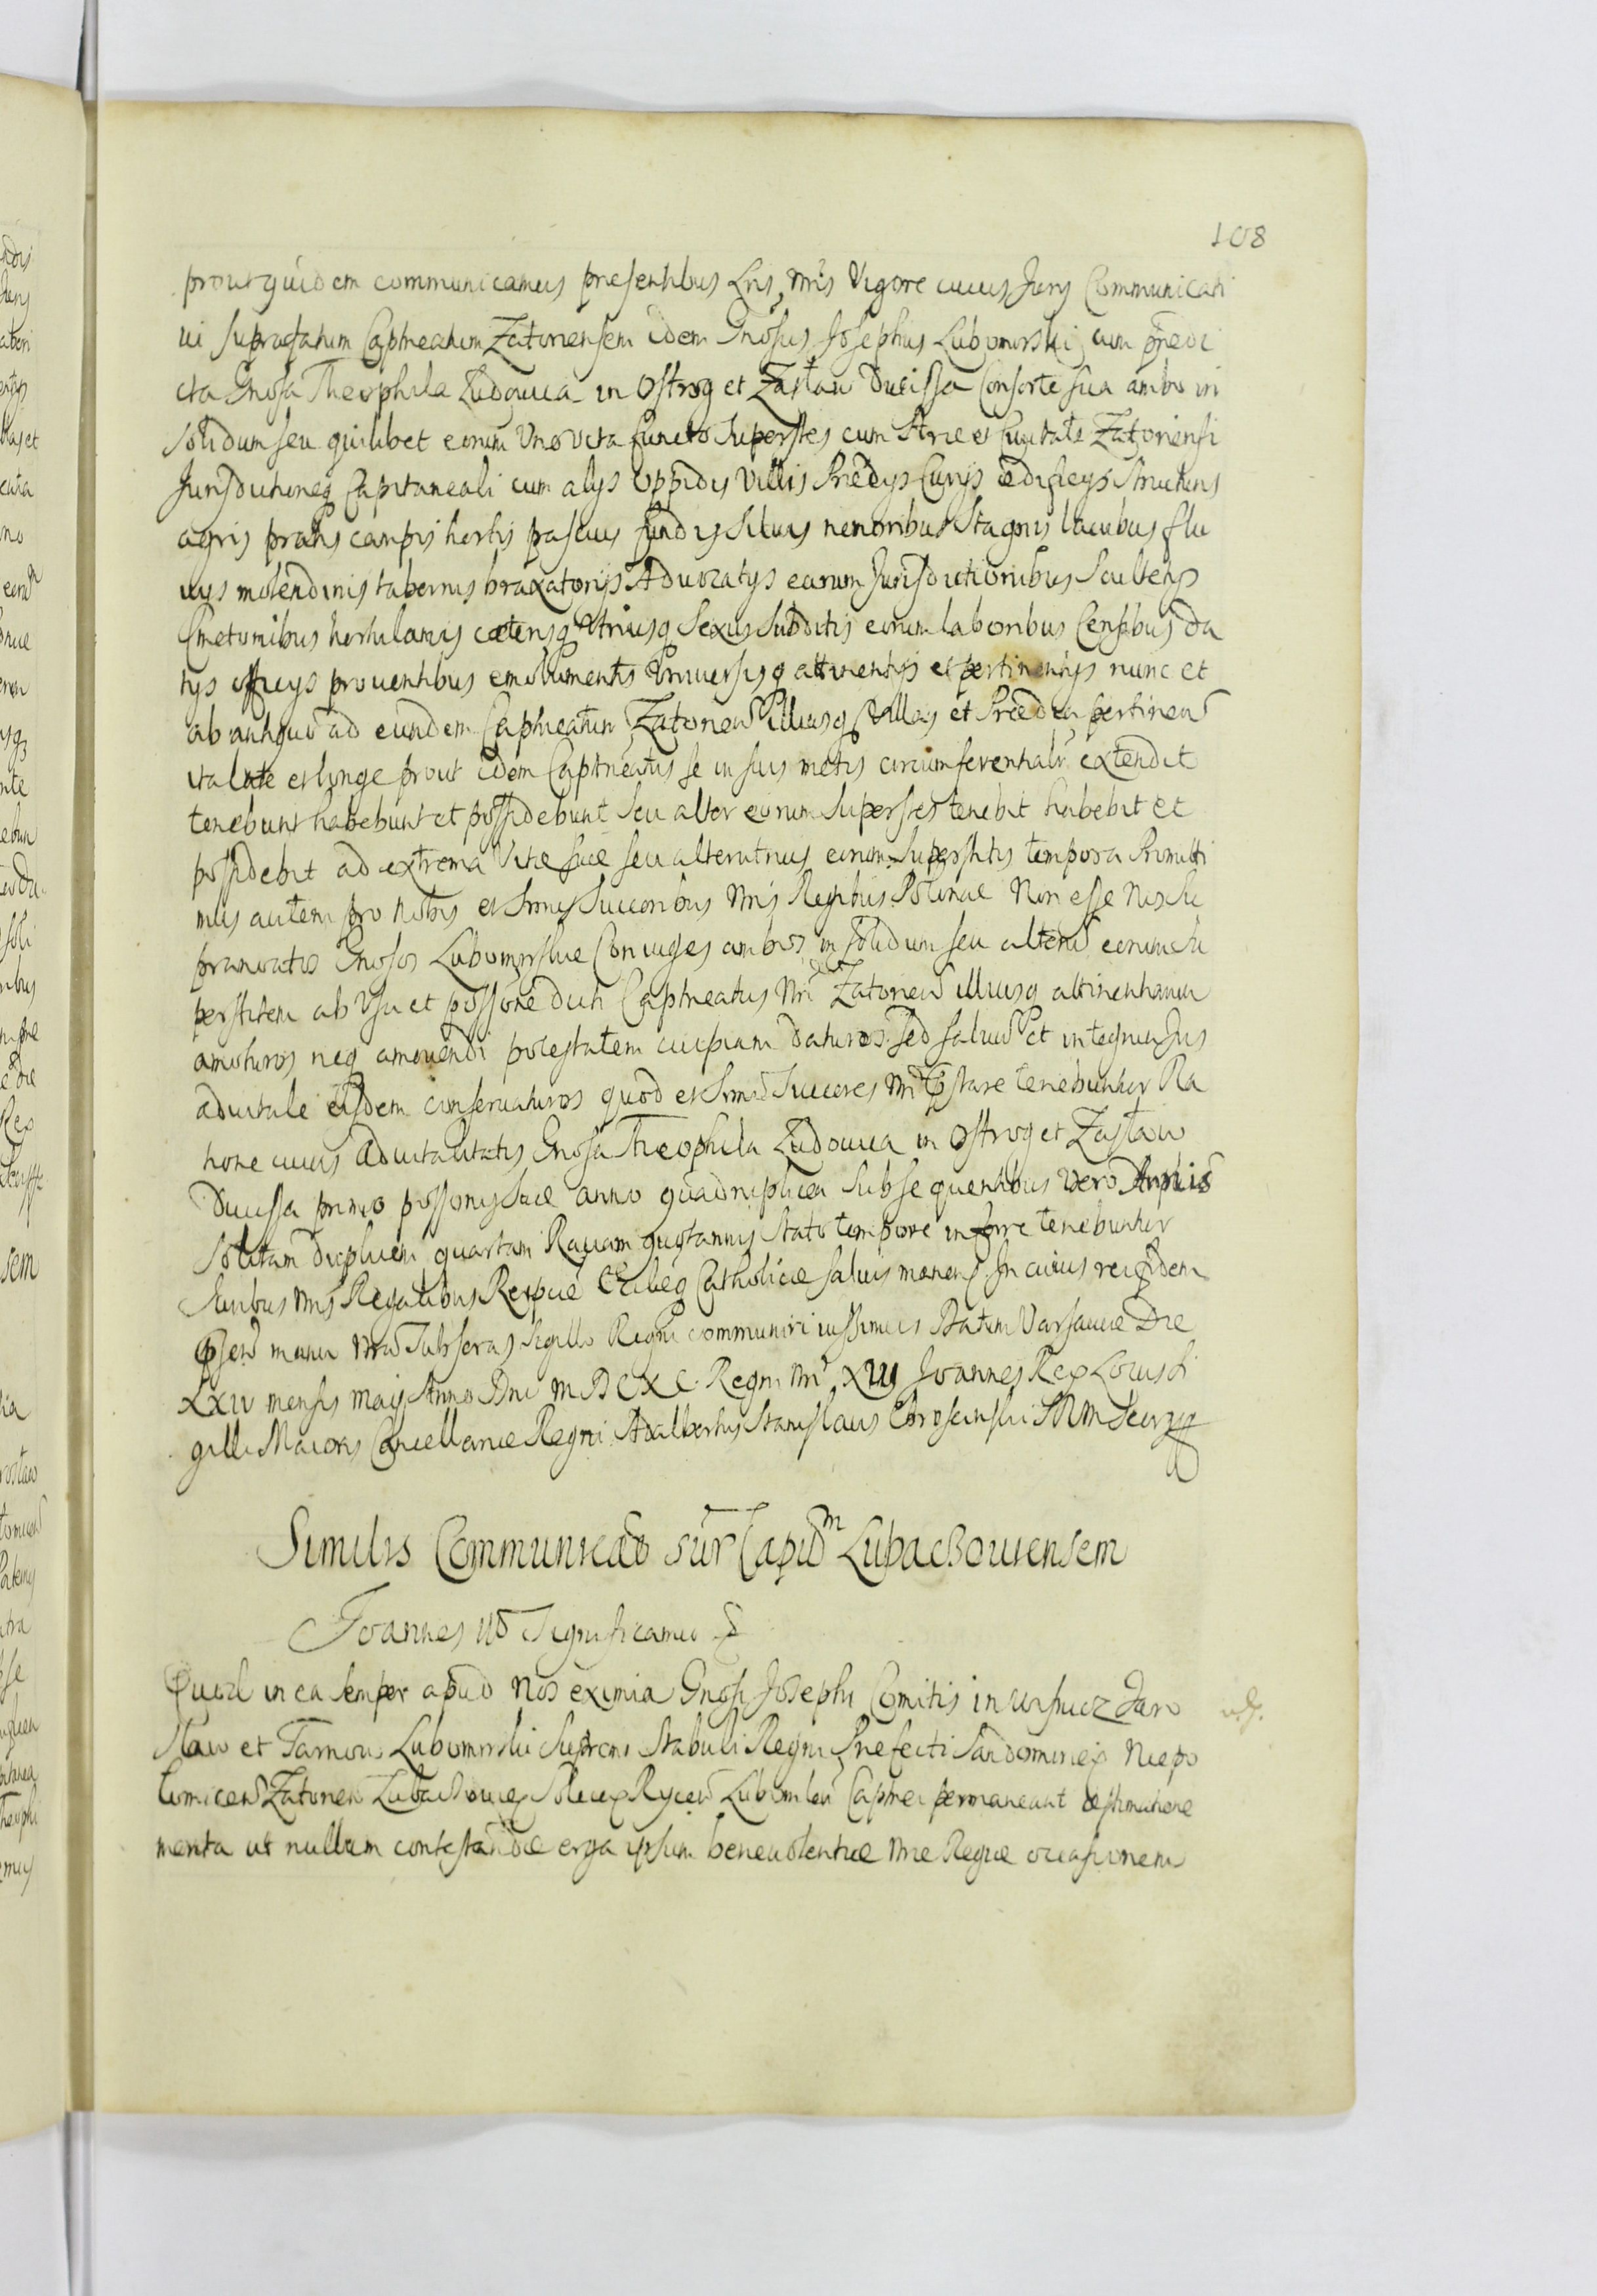 108
prout quidem communicamus presentibus Lris Nris Vigore cuius Juris Communicati
ui supratatum Captneatum Zatoriensem idem Gnosus Josephus Lubomirski cum predi
cta Gnosa Theophila Ludouica in Ostrog et Zasław Ducissa Consorte sua ambo in
solidum seu quilibet eorum Vno vita functo Superstes cum Arce et Ciuitate Zatoriensi
Jurisdictioneq Capitaneali cum alys Oppidis Villis Predys Curys ædificys Structuris
agris pratis campis hortis pascuis fundis Siluis nemoribus Stagnis lacubus flu
uys molendinis tabernis braxatorys Aduocatys earum Jurisdictionibus Scultetys
Cmetonibus hortulanis cæterisq Vtriusq Sexus Subditis eorum laboribus Censibus da
tys officys prouentibus emolumentis Vniuersisq attinentys et pertinentys nunc et
ab antiquo ad eundem Captneatum Zatorien illiusq Villas et Prædia pertinen
ita late et longe prout idem Captneatus se in suis metis circumferentialr extendit
tenebunt habebunt et possidebunt seu alter eorum Superstes tenebit habebit et
possidebit ad extrema Vitæ suæ seu alterutrius eorum Superstitis tempora Promitti
mus autem pro Nobis et Srmis Succoribus Nris Regibus Poloniæ Non esse Nos su
pranoatos Gnosos Lubomirskie Coniuges ambos in solidum seu alteru eorum Su
perstitem ab Vsu et possone dicti Captneatus Nri Zatorien illiusq attinentiarum
amoturos neq amouendi potestatem cuipiam daturos sed saluu et integrum Jus
aduitale eisdem conseruaturos quod et Srmi Succores Nri Pstare tenebuntur Ra
tione cuius aduitalitatis Gnosa Theophila Ludouica in Ostrog et Zasław
Ducissa primo possonis suæ anno quadruplicem Subsequentibus Vero Annis
Solitam duplicem quartam Rauam quotannis stato tempore inferre tenebuntur
Juribus Nris Regalibus Reipue Ecclieq Catholicæ saluis manen In cuius rei fidem
Psen manu Nra Subscras sigillo Regni communiri iussimus Datum Varsauiæ Die
XXIV mensis Maij Anno Dni MDCXC. Regni Nri XVI Joannes Rex Locus Si
gilli Maioris Cancellariæ Regni Adalbertus Stanislaus Chrosciński SRM Secrrg
Similis Communicao sur Captum Lubaczouiensem
Joannes III Significamus &
Quod in ea semper apud Nos eximia Gnosi Josephi Comitis in Wisnicz Jaro
sław et Tarnow Lubomirski Supremi Stabuli Regni Præfecti Sandomirien Niepo
lomicen Zatorien Lubaczouien Solicen Rycen Lubomlen Captnei permaneant æstimatione
merita ut nullam contestandæ erga ipsum beneuolentiæ Nræ Regiæ occasionem